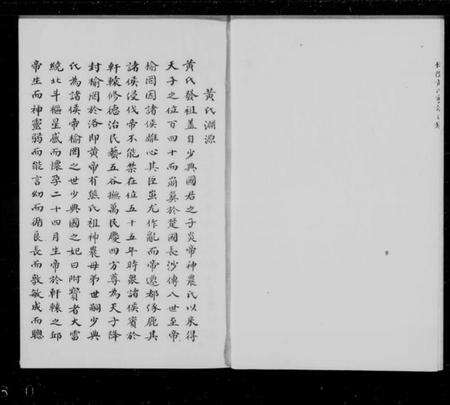 黄氏淵源
黄氏發祖蓋自少典國君之子炎帝神農氏以來得
天子之位百四十而崩葬於楚國長沙傳八世至帝
榆罔因諸侯離心其臣蚩尤作亂而帝遷都涿鹿其
諸侯侵伐帝不能禁在位五十五年時衆諸侯賓於
軒轅修德治民藝五谷撫萬民慶四方尊為天子降
封榆罔於洛即黄帝有熊氏祖神農母弟世嗣少典
氏為諸侯帝榆罔之世少典國之妃曰附寳者大雷
繞北斗樞星感而懷孕二十四月生帝於軒轅之邱
帝生而神靈弱而能言幼而循良長而敦敏成而聰